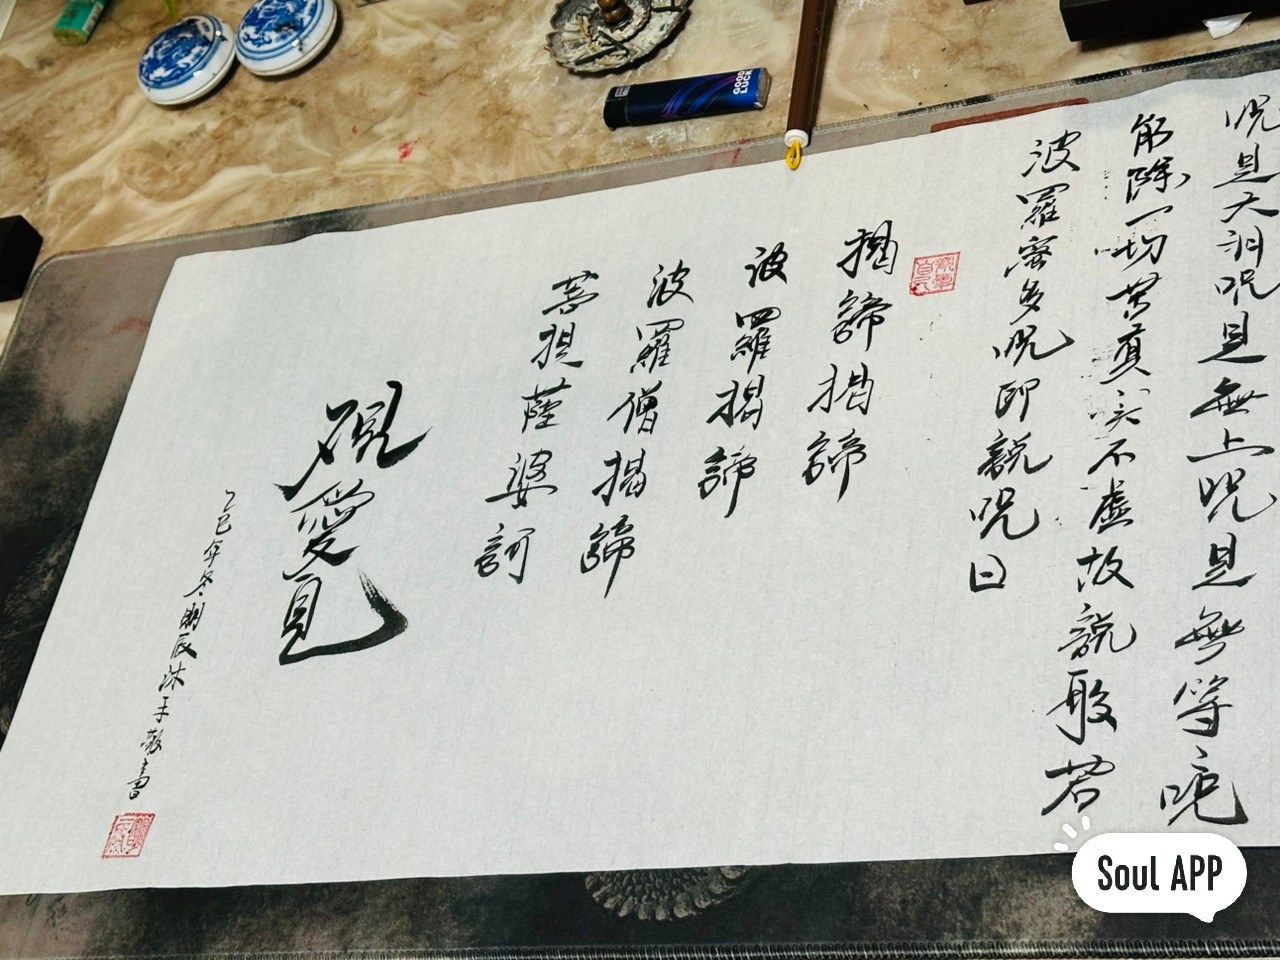 呪是大神呪是無上呪是無等呪
能除一切苦真实不虚故說般若
波羅蜜多呪即說呪曰
揭諦揭諦
波羅揭諦
波羅僧揭諦
菩提薩婆訶
乙巳年冬明辰沐手敬書
GOOD LUCK
Soul APP